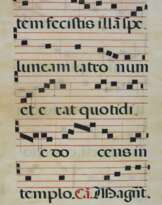 tem fecistis illā spe
luncam latro num
et e rat quotidi
e do cens in
templo. Ci. Magnī.